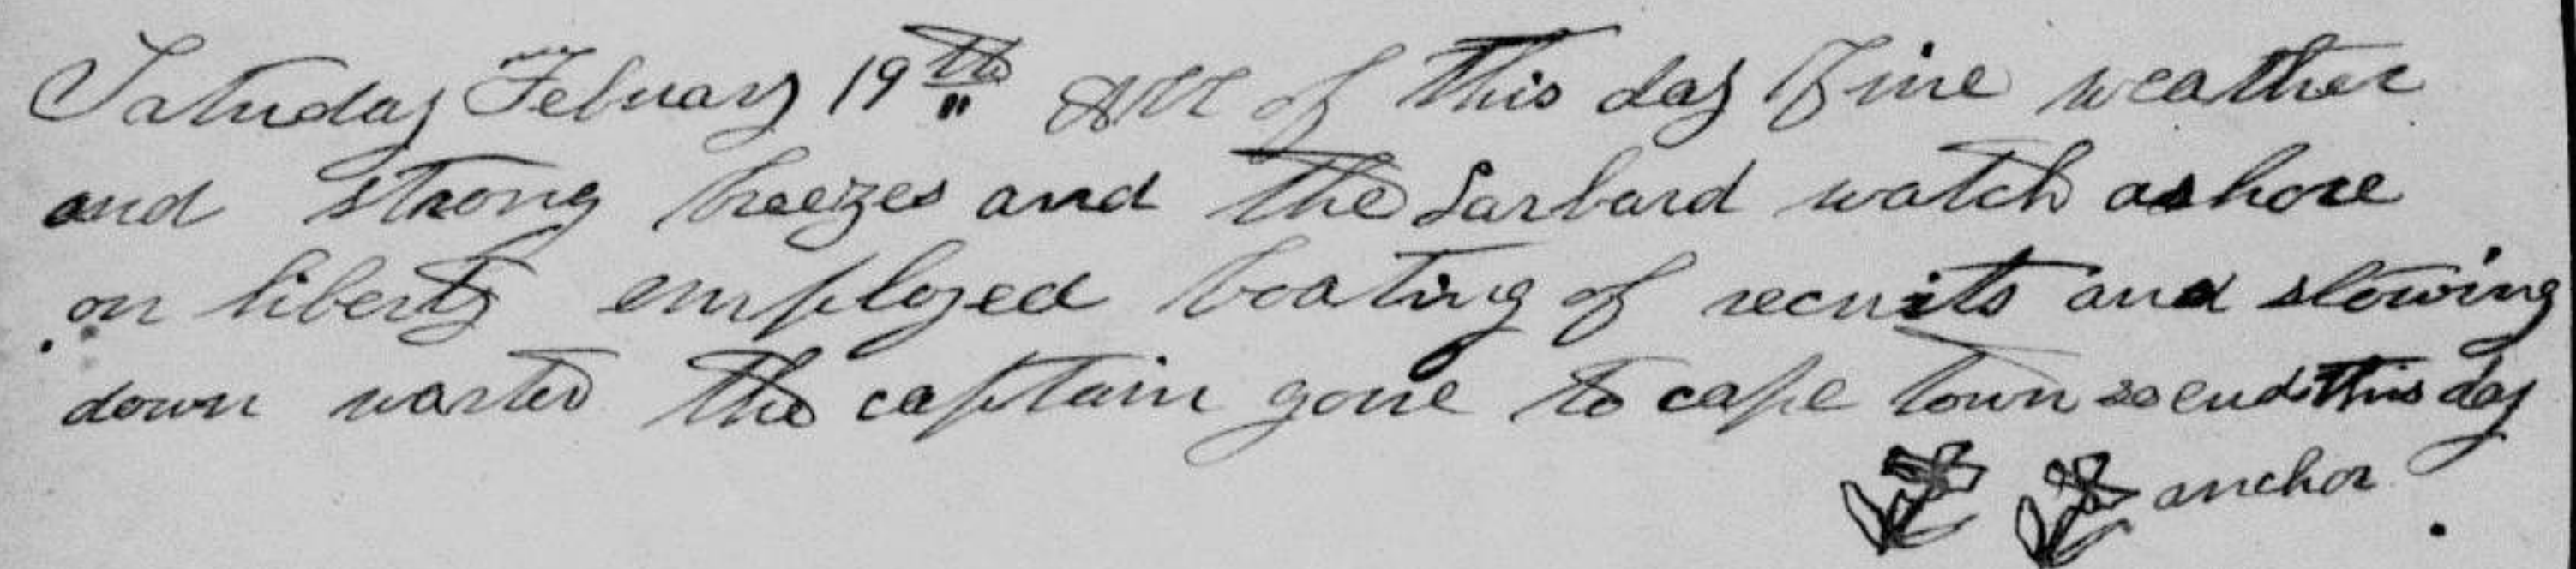 Saturday Febuary 19th All of this day Fine weather
and strong breezes and the Larbard watch ashore
on liberty employed boating of recruits and stowing
down warter the captain gone to cape town so ends this day
anchor